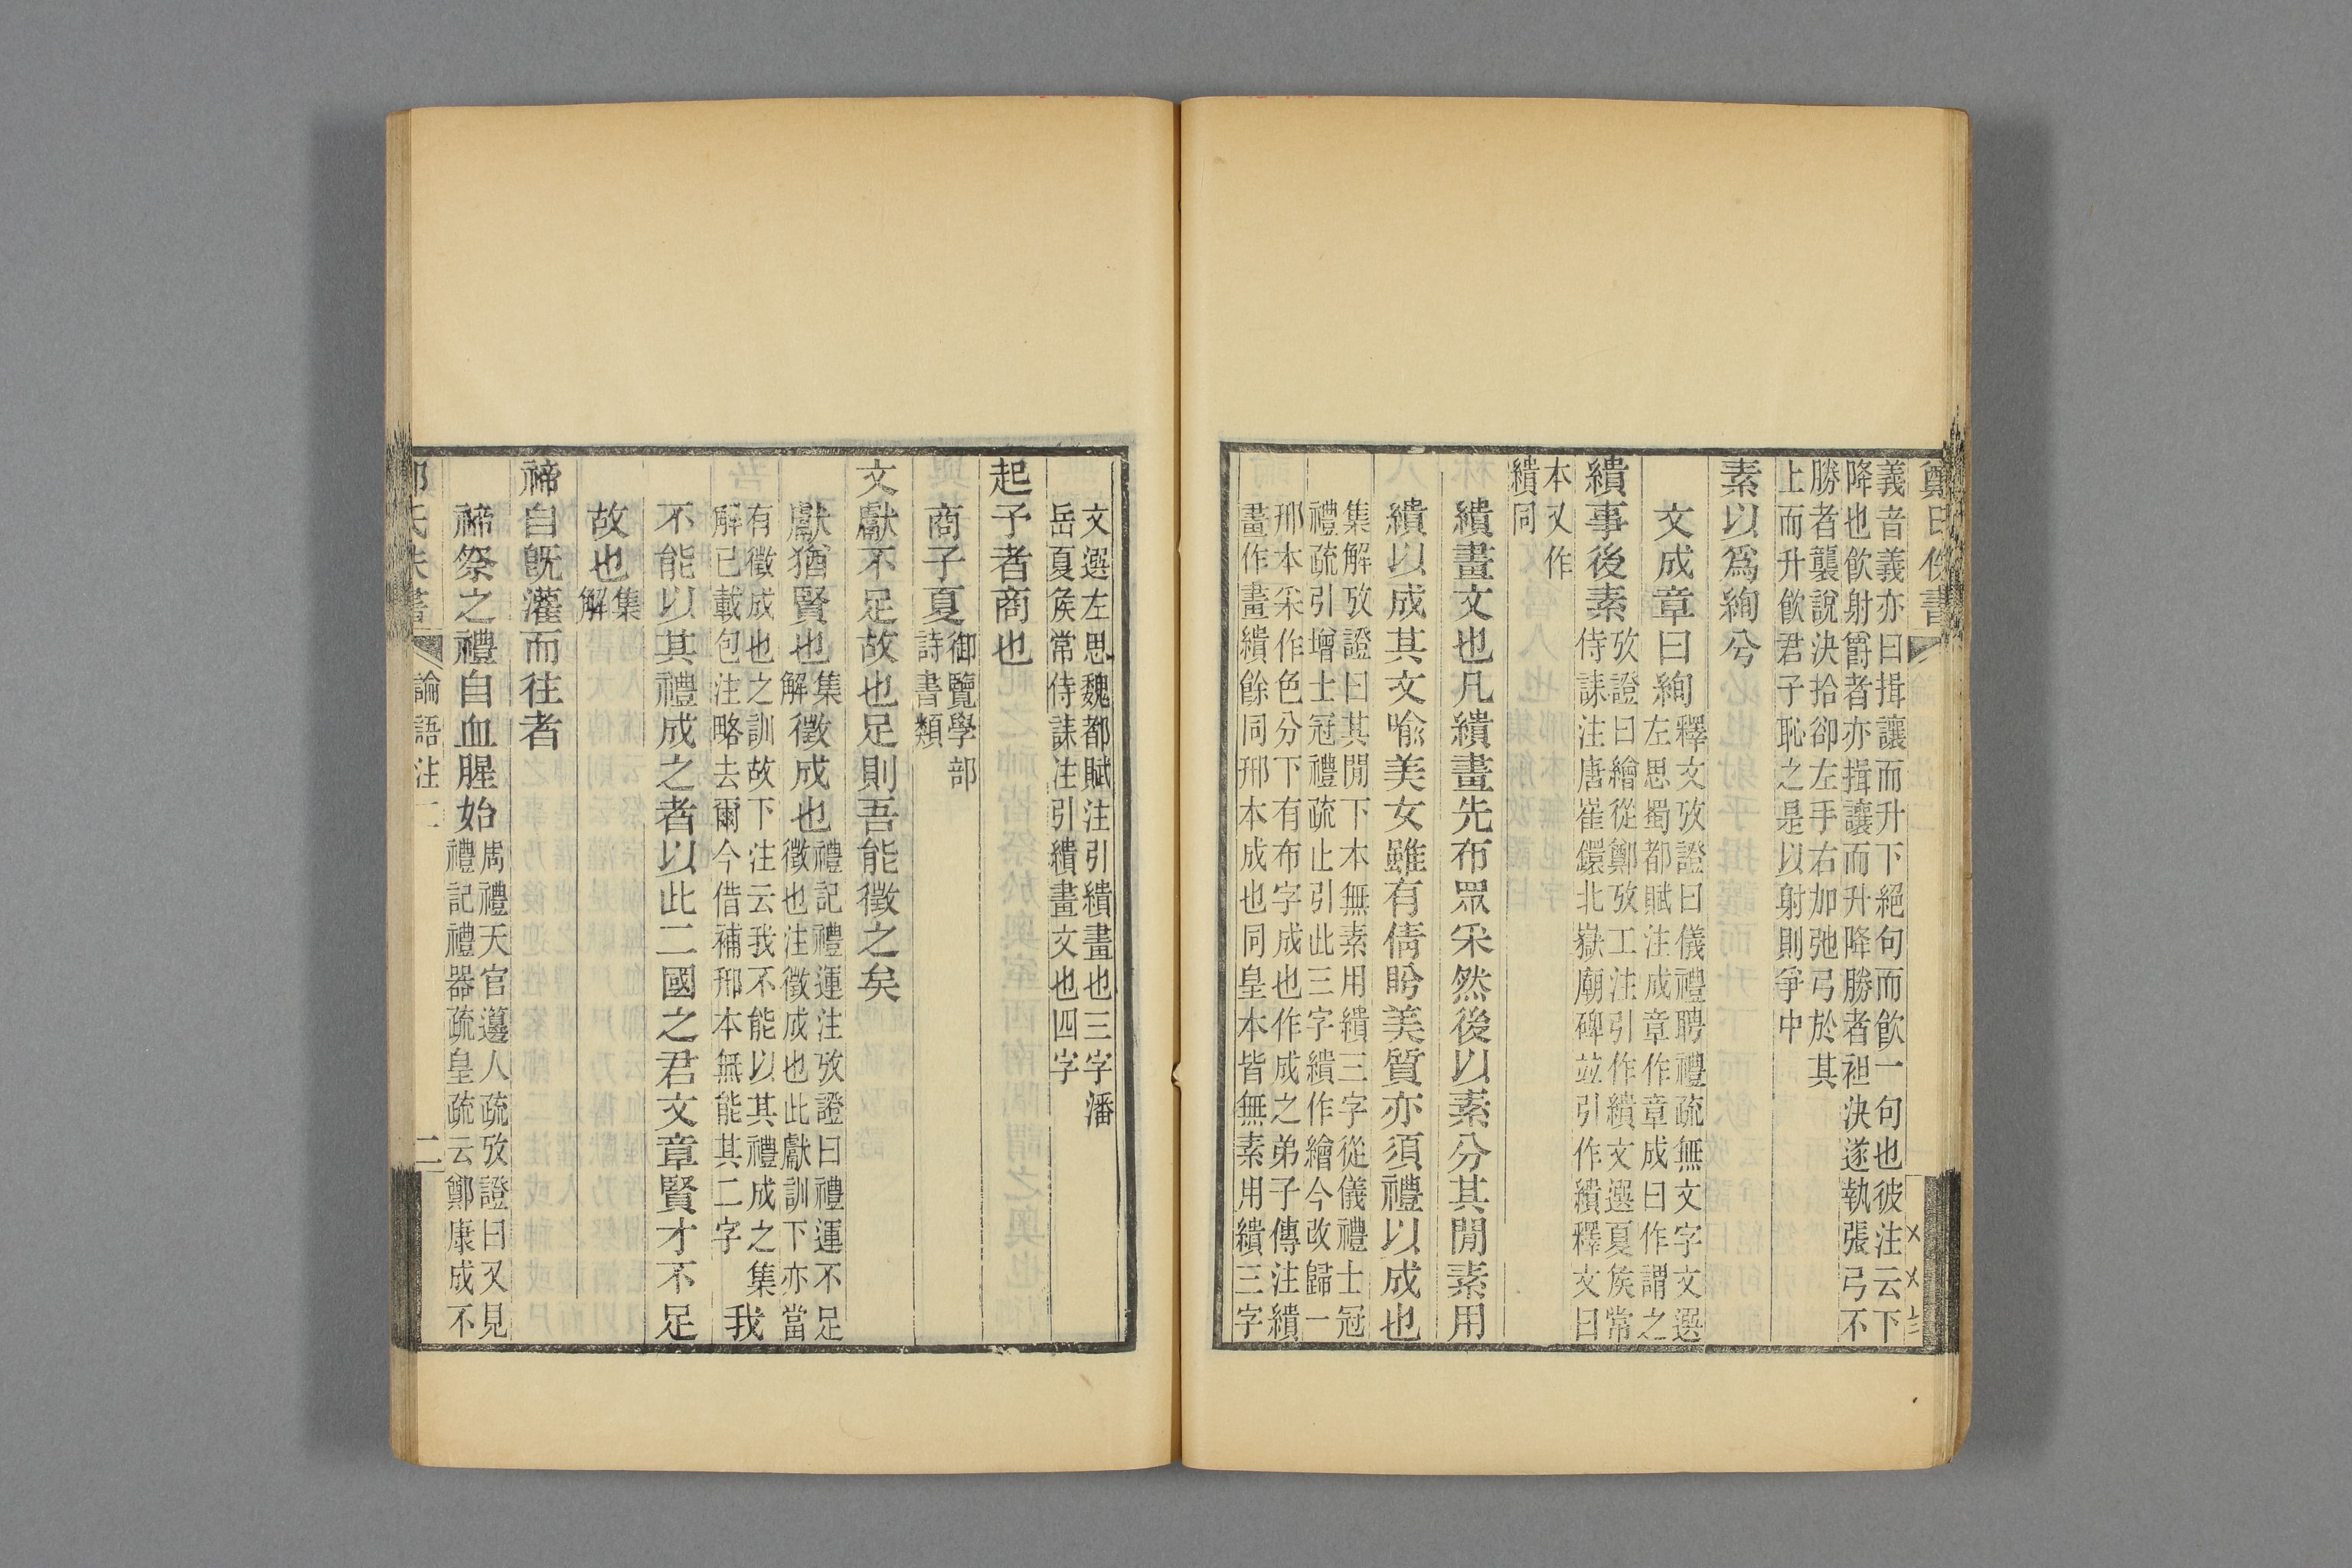 義音義亦曰揖讓而升下絕句而飮一句也彼注云下
降也飮射爵者亦揖讓而升降勝者袒決遂執張弓不
勝者襲說決拾卻左手右加弛弓於其
上而升飮君子恥之是以射則爭中
素以爲絢兮
文成章曰絢釋文攷證曰儀禮聘禮疏無文字文選
左思蜀都賦注成章作章成曰作謂之
繢事後素攷證曰繪從鄭攷工注引作繢文選夏矦常
侍誄注唐崔鐶北嶽廟碑竝引作繢釋文曰
本又作
繢同
繢畫文也凡繢畫先布眾采然後以素分其閒素用
繢以成其文喻美女雖有倩盼美質亦須禮以成也
集解攷證曰其閒下本無素用繢三字從儀禮士冠
禮疏引增士冠禮疏止引此三字繢作繪今改歸一
邢本采作色分下有布字成也作成之弟子傳注繢
畫作畫繢餘同邢本成也同皇本皆無素用繢三字
文選左思魏都賦注引繢畫也三字潘
岳夏矦常侍誄注引繢畫文也四字
起予者商也
商子夏御覽學部
詩書類
文獻不足故也足則吾能徵之矣
獻猶賢也集
解徵成也禮記禮運注攷證曰禮運不足
徵也注徵成也此獻訓下亦當
有徵成也之訓故下注云我不能以其禮成之集
解已載包注略去爾今借補邢本無能其二字我
不能以其禮成之者以此二國之君文章賢才不足
故也集
解
禘自旣灌而往者
禘祭之禮自血腥始周禮天官籩人疏攷證曰又見
禮記禮器疏皇疏云鄭康成不
論語注二
二